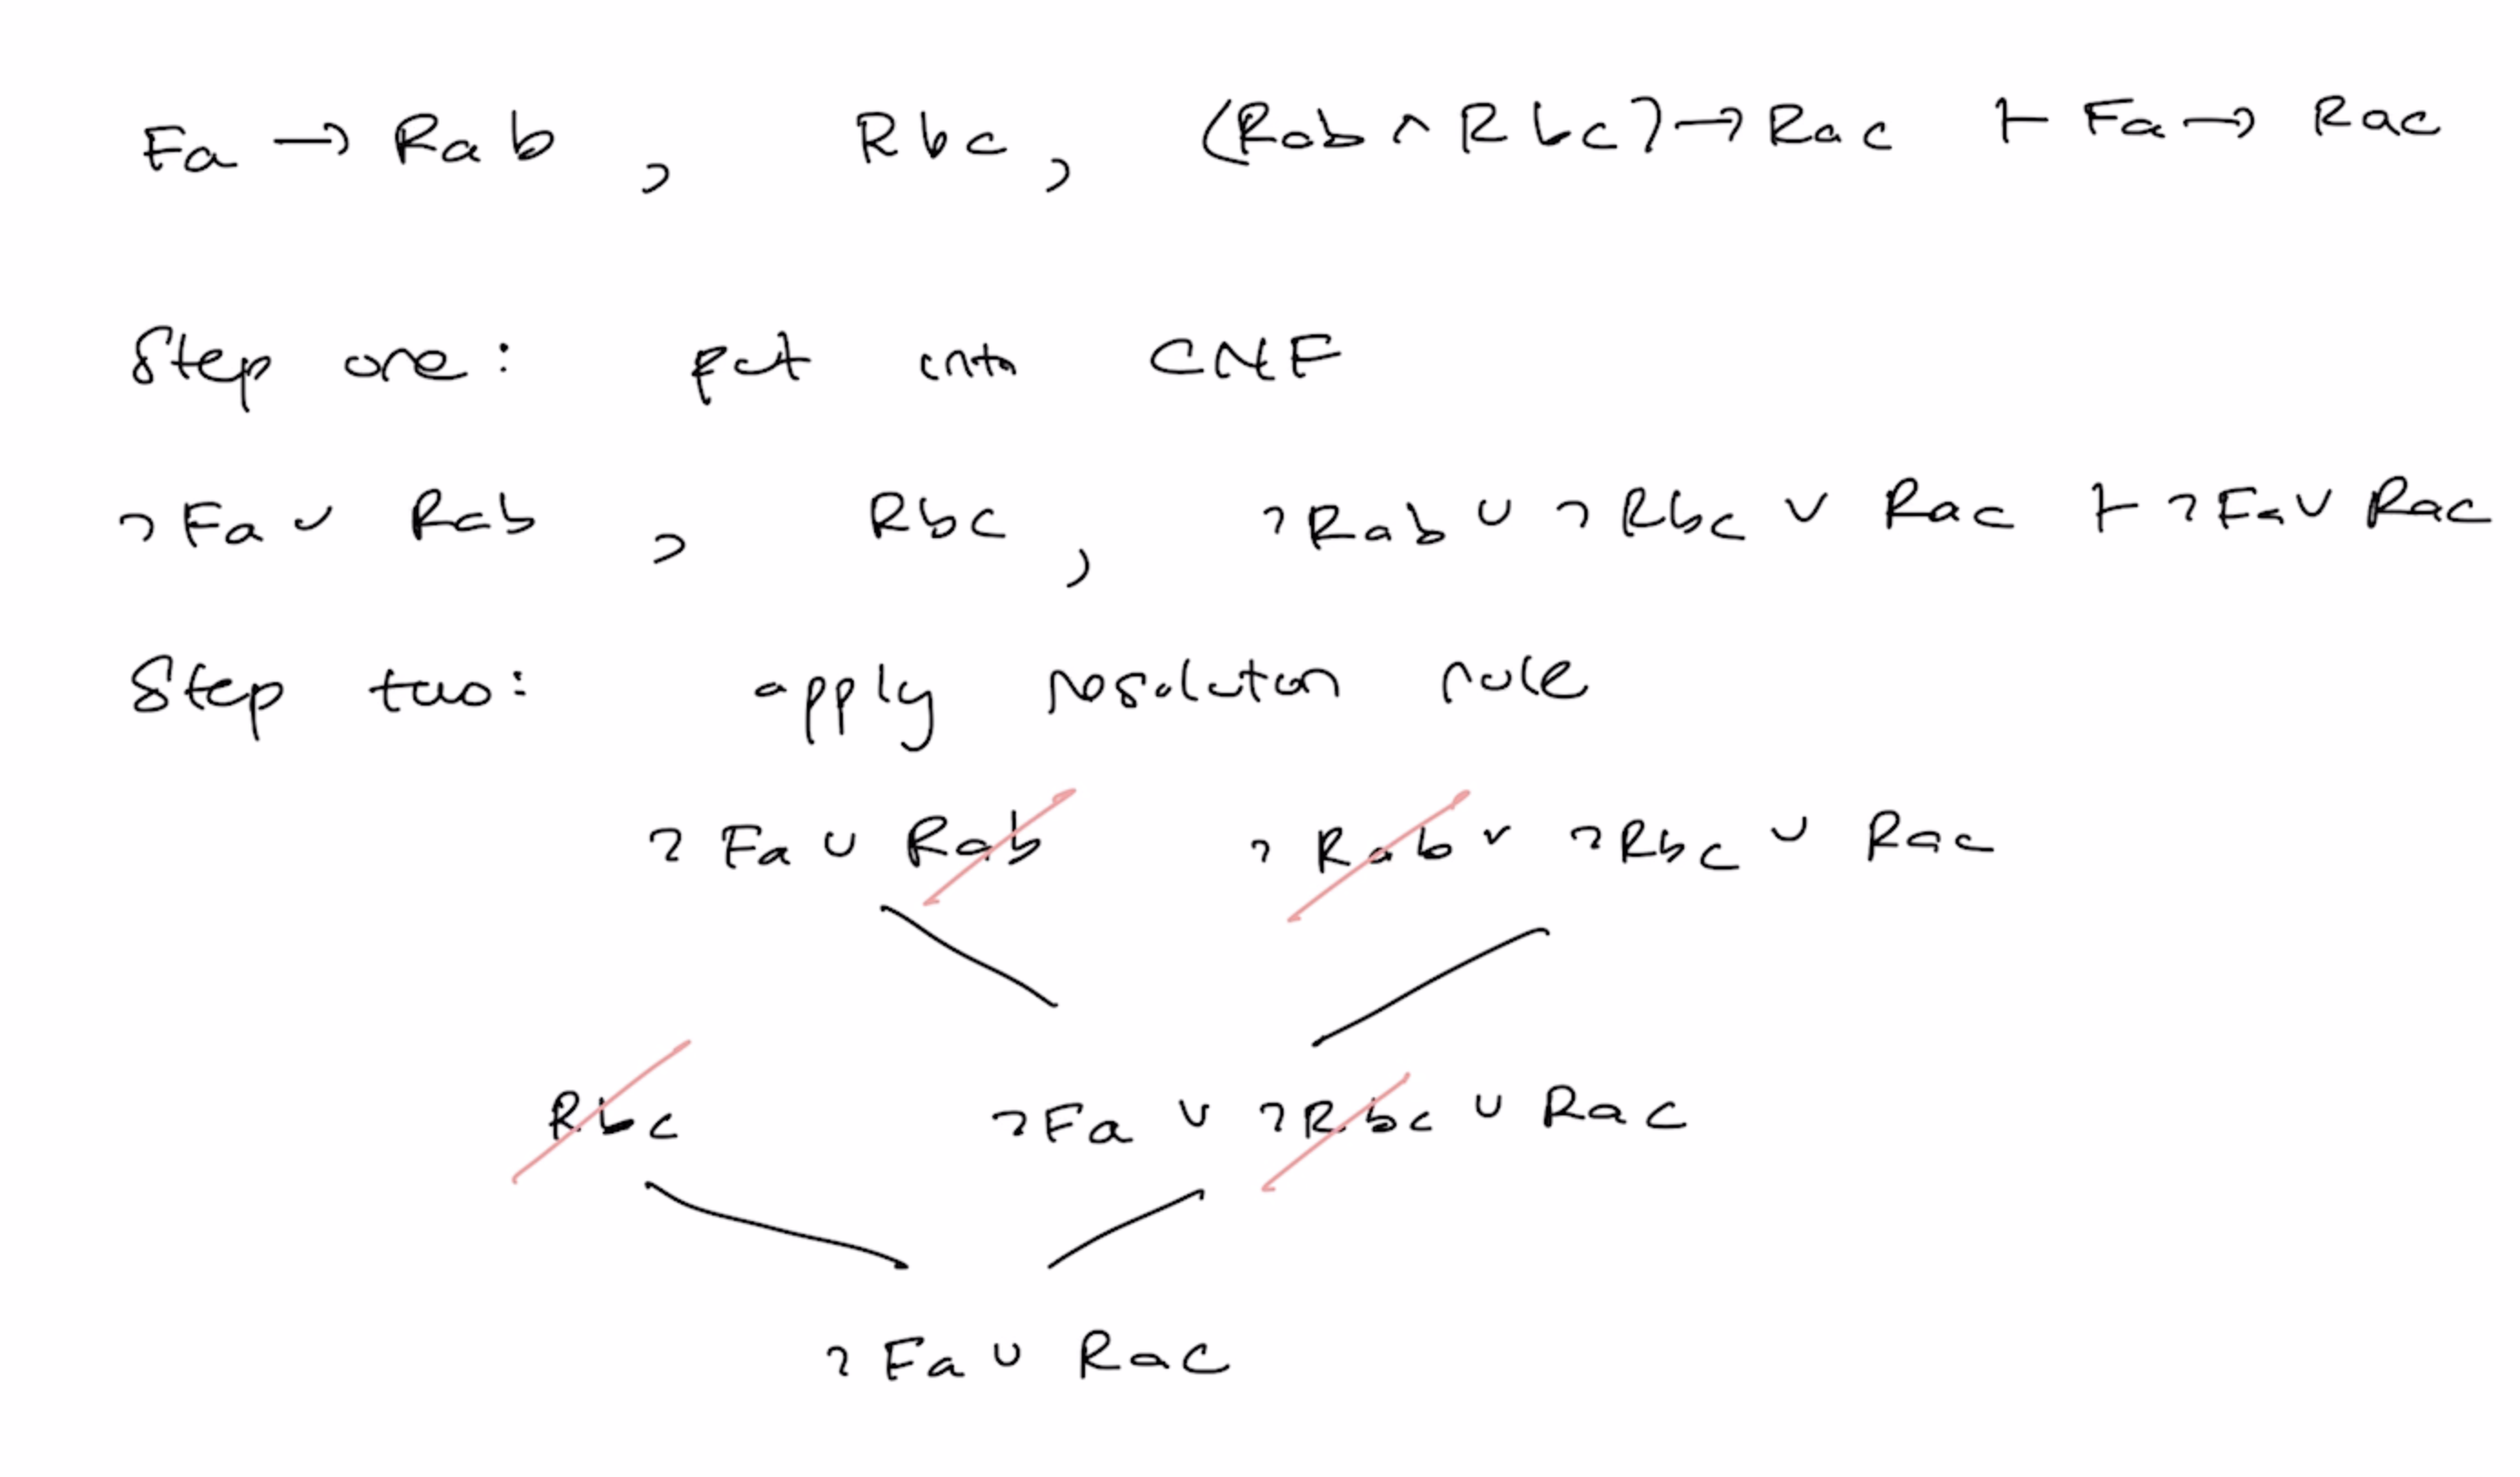 Fa → Rab , Rbc , (Rab ∧ Rbc) → Rac ⊢ Fa → Rac
Step one: put into CNF
¬Fa ∨ Rab , Rbc , ¬Rab ∨ ¬Rbc ∨ Rac ⊢ ¬Fa ∨ Rac
Step two: apply resolution rule
¬Fa ∨ Rab ¬Rab ∨ ¬Rbc ∨ Rac
Rbc ¬Fa ∨ ¬Rbc ∨ Rac
¬Fa ∨ Rac